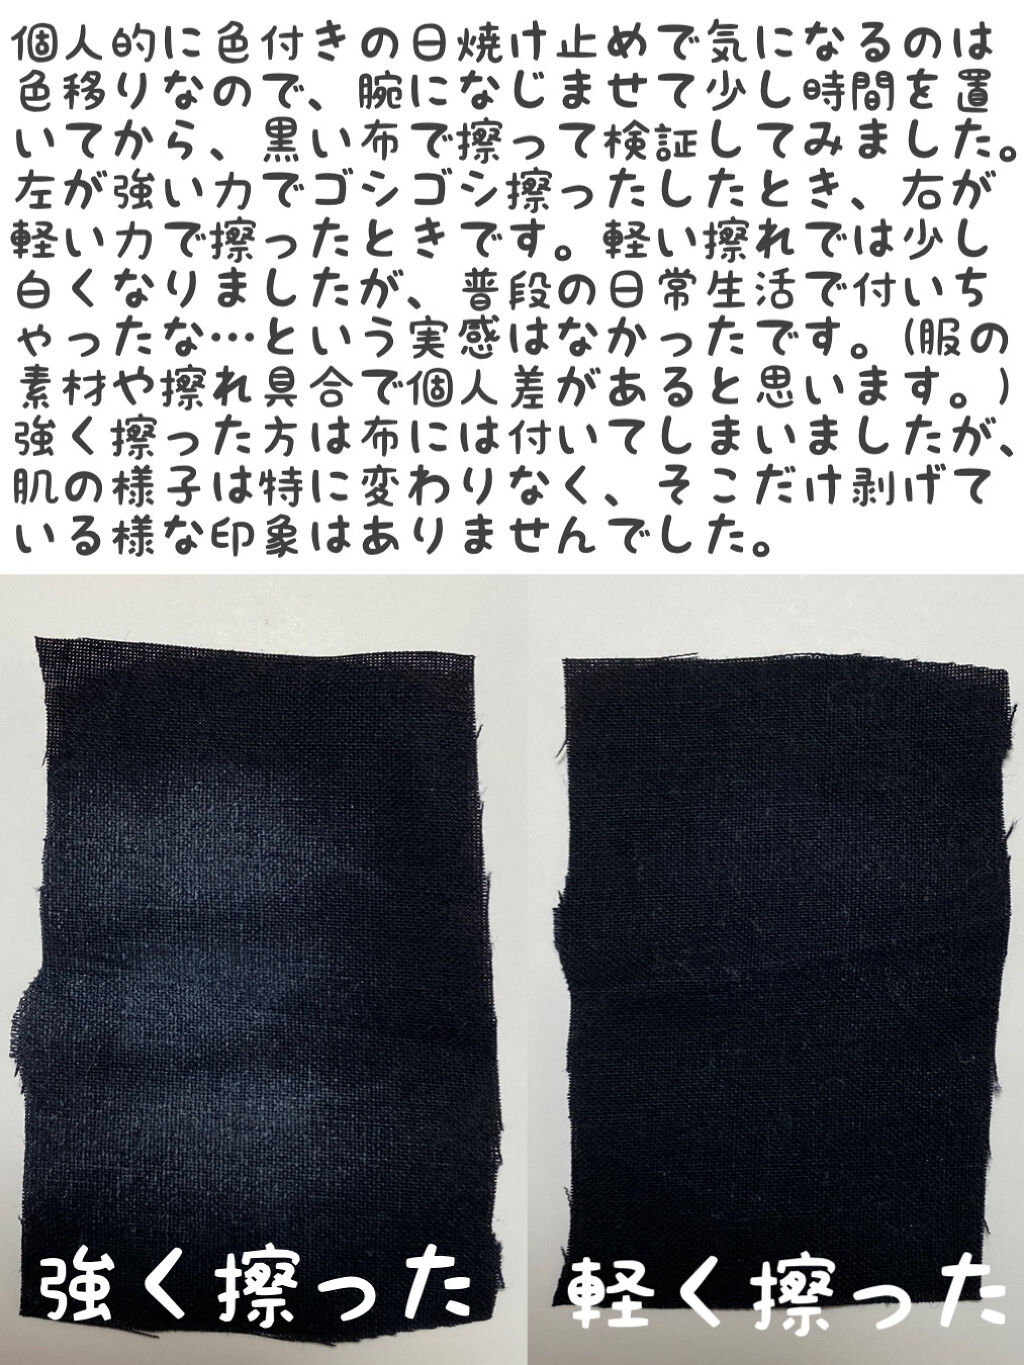 個人的に色付きの日焼け止めで気になるのは
色移りなので、腕になじませて少し時間を置
いてから、黒い布で擦って検証してみました。
左が強い力でゴシゴシ擦ったしたとき、右が
軽い力で擦ったときです。軽い擦れでは少し
白くなりましたが、普段の日常生活で付いち
ゃったな…という実感はなかったです。(服の
素材や擦れ具合で個人差があると思います。)
強く擦った方は布には付いてしまいましたが、
肌の様子は特に変わりなく、そこだけ剥げて
いる様な印象はありませんでした。
強く擦った
軽く擦った